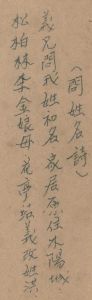 (問姓名詩)
義兄問我姓和名 家居原住木陽城
松柏林李金娘母 花亭結義改姓洪